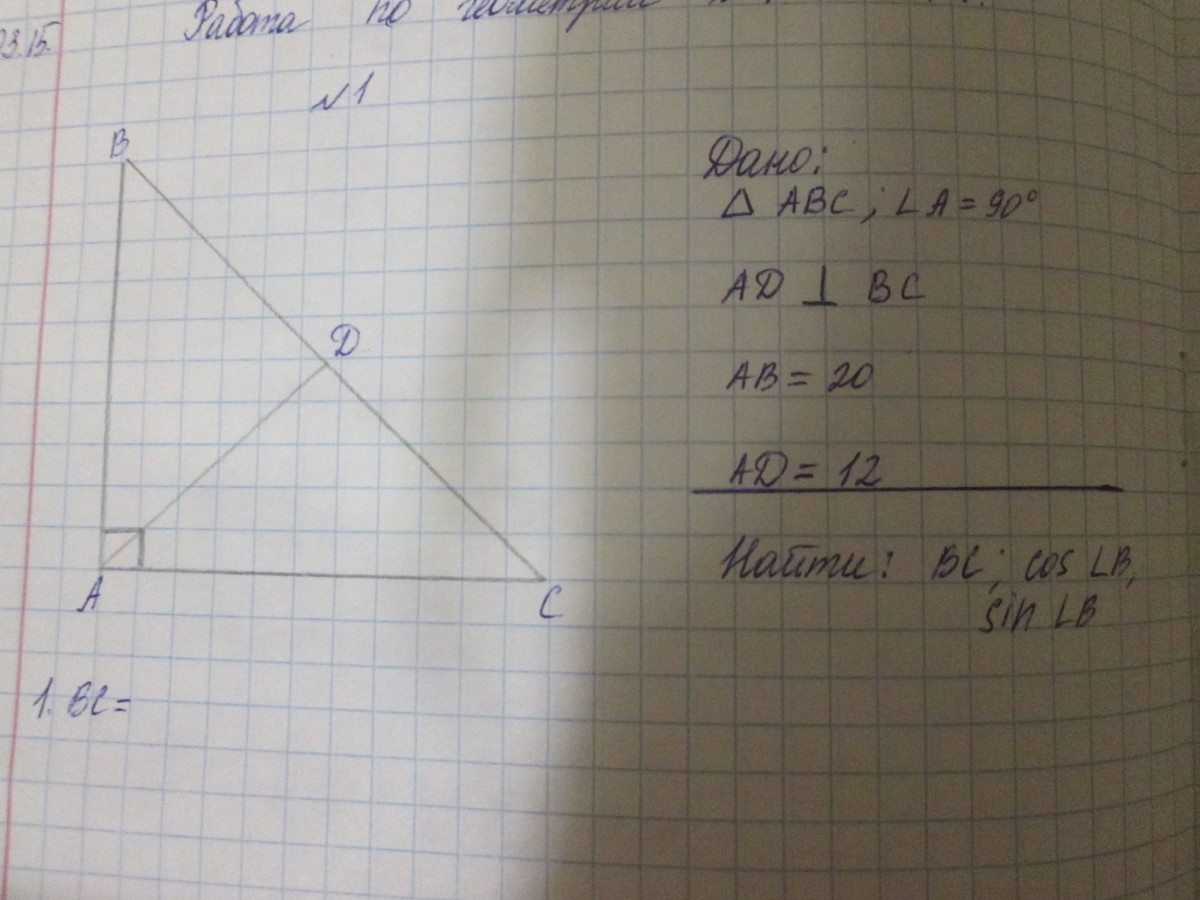 03.15.
Работа по геометрии
№1
B
D
A
C
Дано:
Δ ABC; ∠A = 90°
AD ⊥ BC
AB = 20
AD = 12
Найти: BC; cos ∠B,
sin ∠B
1. BC =